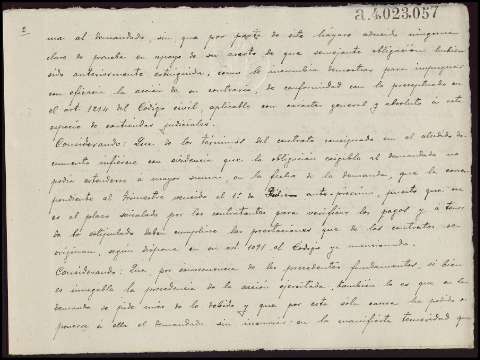 2
a.4.023.057
ma al demandado, sin que por parte de este hayase aducido ninguna
clase de prueba en apoyo de su aserto de que semejante obligación hubiera
sido anteriormente extinguida, como le incumbía demostrar para impugnar
con eficacia la acción de su contrario, de conformidad con lo preceptuado en
el art. 1214 del Código civil, aplicable con caracter general y absoluto á esta
especie de contiendas judiciales.
Considerando: Que de los términos del contrato consignado en el aludido do-
cumento infiérese con evidencia que la obligación exigible al demandado no
podía extenderse á mayor suma, en la fecha de la demanda, que la corres-
pondiente al trimestre vencido el 1º de ante-próximo, puesto que ese
es el plazo señalado por los contratantes para verificar los pagos y á tenor
de lo estipulado deben cumplirse las prestaciones que de los contratos se
originan, según dispone en su art. 1091 el Código ya mencionado.
Considerando: Que por consecuencia de los precedentes fundamentos, si bien
es innegable la procedencia de la acción ejercitada, también lo es que en la
demanda se pide más de lo debido y que por esta sola causa ha podido o-
ponerse á ella el demandado sin incurrir en la manifiesta temeridad que